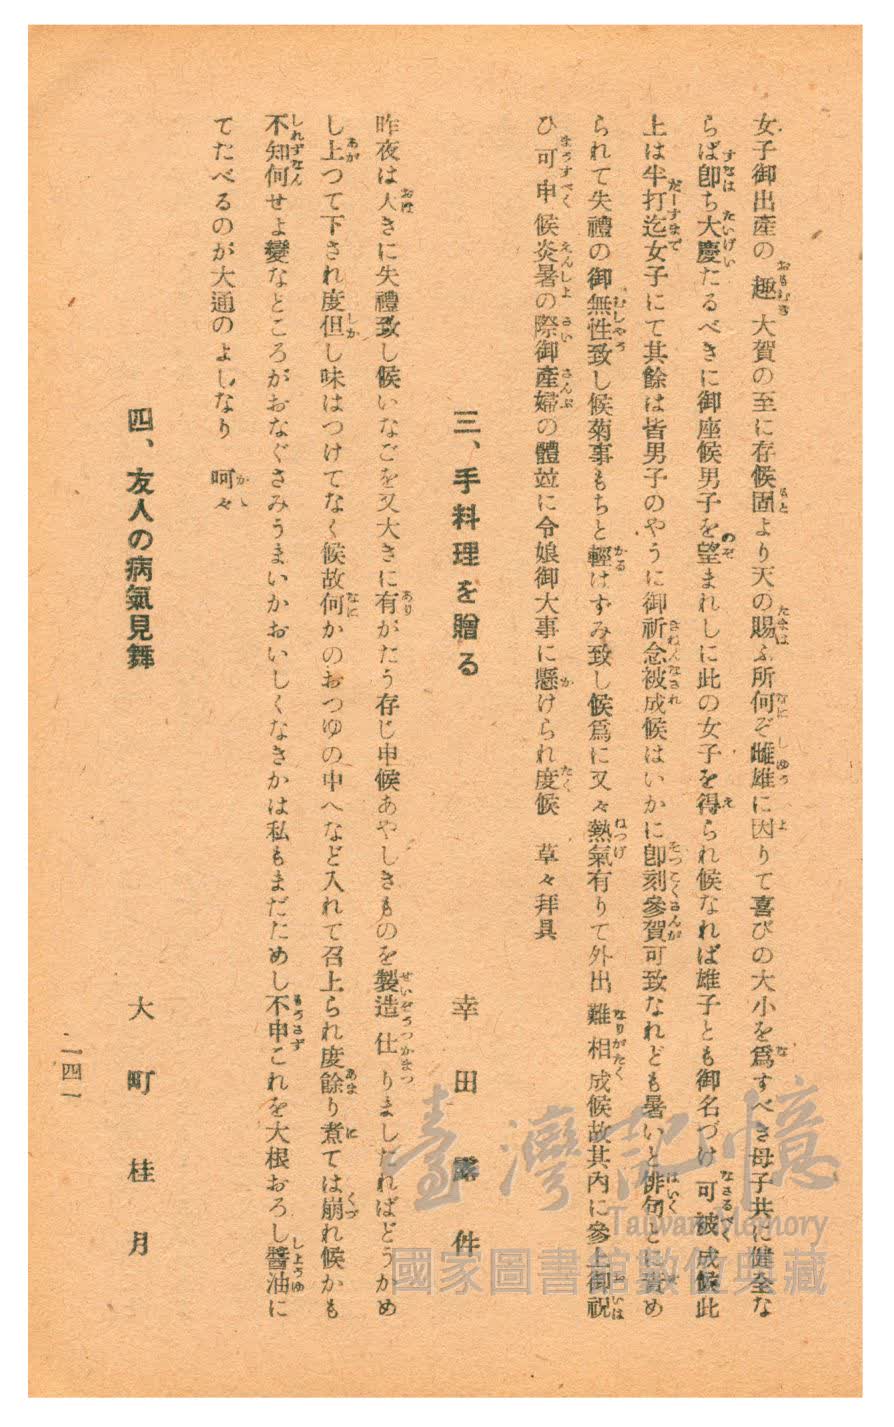 女子御出產の趣大賀の至に存候固より天の賜ふ所何ぞ雌雄に因りて喜びの大小を爲すべき母子共に健全な
らば卽ち大慶たるべきに御座候男子を望まれしに此の女子を得られ候なれば雄子とも御名づけ可被成候此
上は半打迄女子にて其餘は皆男子のやうに御祈念被成候はいかに卽刻參賀可致なれども暑いと俳句とに責め
られて失禮の御無性致し候菊事もちと輕はずみ致し候爲に又々熱氣有りて外出難相成候故其內に參上御祝
ひ可申候炎暑の際御產婦の體竝に令娘御大事に懸けられ度候　草々拜具
三、手料理を贈る　幸田露伴
昨夜は大きに失禮致し候いなごを又大きに有がたう存じ申候あやしきものを製造仕りましたればどうかめ
し上つて下され度但し味はつけてなく候故何かのおつゆの中へなど入れて召上られ度餘り煮ては崩れ候かも
不知何せよ變なところがおなぐさみうまいかおいしくなきかは私もまだためし不申これを大根おろし醬油に
てたべるのが大通のよしなり　呵々
四、友人の病氣見舞　大町桂月
二四一
臺灣記憶
Taiwan Memory
國家圖書館數位典藏